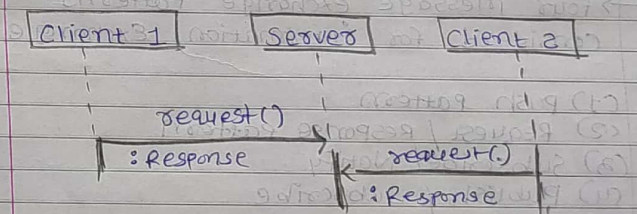 Client 1 Server Client 2
request()
: Response request(.)
: Response